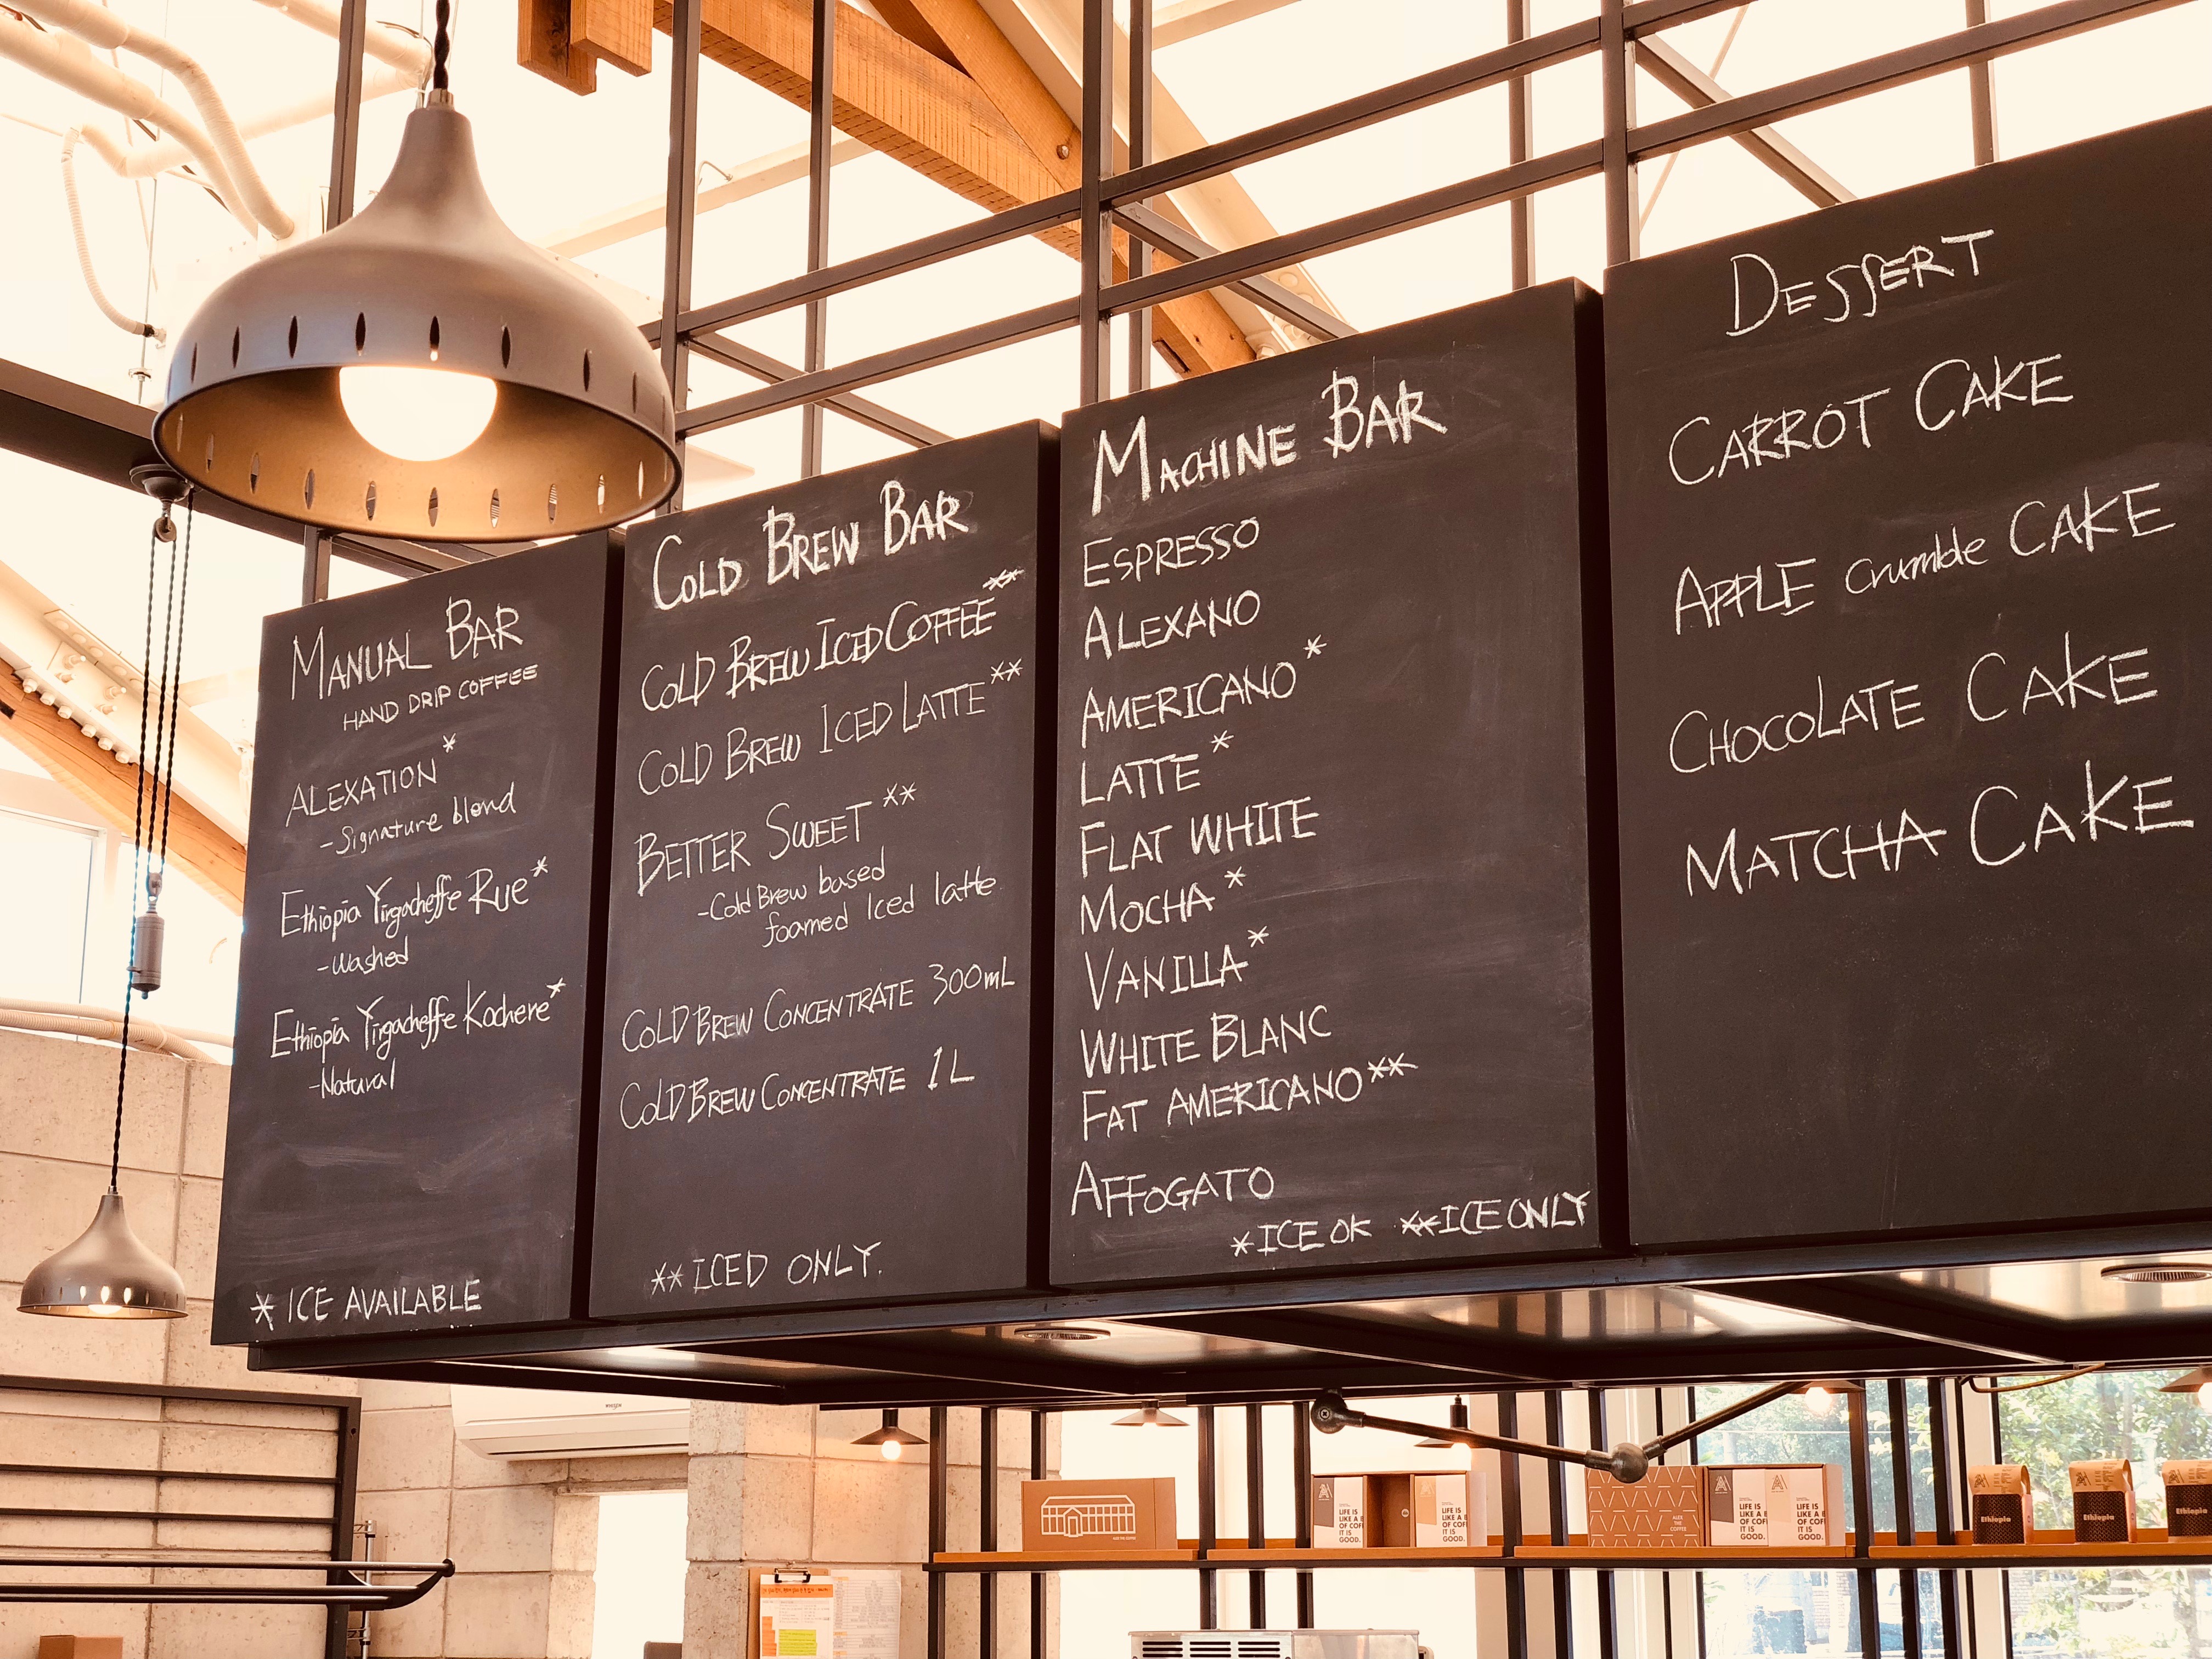 MANUAL BAR
HAND DRIP COFFEE
ALEXATION*
-Signature blend
Ethiopia Yirgacheffe Rue*
-Washed
Ethiopia Yirgacheffe Kochere*
-Natural
* ICE AVAILABLE
COLD BREW BAR
COLD BREW ICED COFFEE**
COLD BREW ICED LATTE**
BETTER SWEET**
-Cold Brew based
foamed Iced latte
COLD BREW CONCENTRATE 300mL
COLD BREW CONCENTRATE 1L
** ICED ONLY.
MACHINE BAR
ESPRESSO
ALEXANO
AMERICANO*
LATTE*
FLAT WHITE
MOCHA*
VANILLA*
WHITE BLANC
FAT AMERICANO**
AFFOGATO
*ICE OK **ICE ONLY
DESSERT
CARROT CAKE
APPLE crumble CAKE
CHOCOLATE CAKE
MATCHA CAKE
ALEX THE COFFEE
LIFE IS
LIKE A
OF COF
IT IS
GOOD.
LIFE IS
LIKE A
OF COF
IT IS
GOOD.
ALEX
THE
COFFEE
LIFE IS
LIKE A
OF COF
IT IS
GOOD.
LIFE IS
LIKE A
OF COF
IT IS
GOOD.
Ethiopia
Ethiopia
Ethiopia